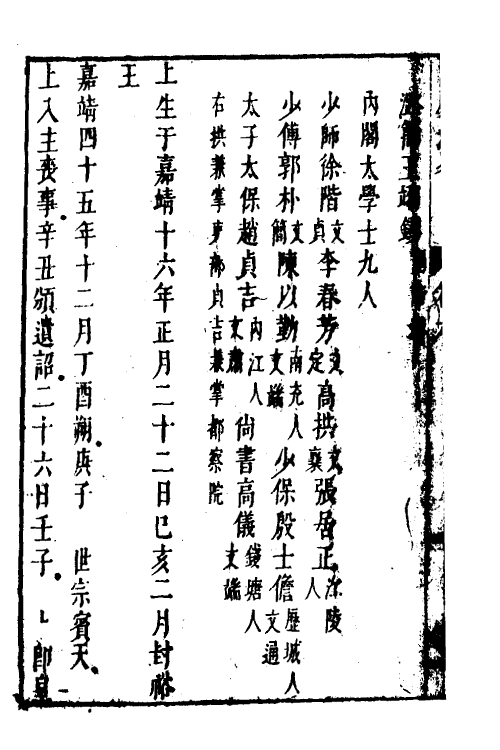 內閣大學士九人
少師徐階文貞李春芳文定高拱文襄張居正江陵人
少傅郭朴文簡陳以勤南充人文端少保殷士儋歷城人文通
太子太保趙貞吉內江人文肅尚書高儀錢塘人文端
右拱兼掌吏部貞吉兼掌都察院
上生于嘉靖十六年正月二十二日己亥二月封裕
王
嘉靖四十五年十二月丁酉朔庚子 世宗賓天
上入主喪事辛丑頒遺詔二十六日壬子 上即皇